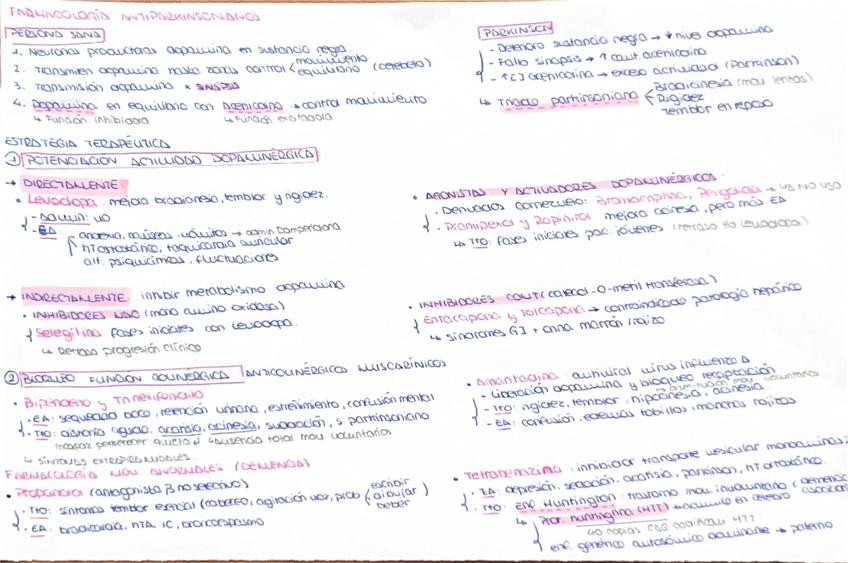 FARMACOLOGÍA ANTIPARKINSONIANOS
PERSONA SANA
1. Neuronas productoras dopamina en sustancia negra.
2. Transmiten dopamina hasta zonas control < movimiento equilibrio (cerebelo)
3. Transmisión dopamina x SINAPSIS
4. Dopamina en equilibrio con Acetilcolina → control movimiento
↳ Función inhibidora ↳ Función excitadora
PARKINSON
- Deterioro sustancia negra → ↓ nivel dopamina
- Fallo sinapsis → ↑ cant. acetilcolina
- ↑ [ ] acetilcolina → exceso actividad (Parkinson)
↳ Triada parkinsoniana < Bradicinesia (mov. lentos)
Rigidez
Temblor en reposo
ESTRATEGIA TERAPÉUTICA
① POTENCIACIÓN ACTIVIDAD DOPAMINÉRGICA
→ DIRECTAMENTE
• Levodopa: mejora bradicinesia, temblor y rigidez.
- Admin: VO
- EA: anorexia, náuseas, vómitos → admin
hTortostática, taquicardia auricular
alt. psiquiátricas, fluctuaciones
• AGONISTAS Y ACTIVADORES DOPAMINÉRGICOS:
- Derivados cornezuelo: Bromocriptina, Pergolida → YA NO USO
- Pramipexol y Ropinirol: mejora acinesia, pero más EA
↳ TTO: fases iniciales pac. jóvenes (retraso tto levodopa)
→ INDIRECTAMENTE: inhibir metabolismo dopamina
• INHIBIDORES MAO (mono amino oxidasa)
Selegilina: fases iniciales con Levodopa.
↳ Retrasa progresión clínica
• INHIBIDORES COMT (catecol-O-metil transferasa)
Entacapona y Tolcapona → contraindicado patología hepática
↳ síndromes GI + orina marrón/rojizo
② BLOQUEO FUNCIÓN COLINÉRGICA ANTICOLINÉRGICOS MUSCARÍNICOS
• Biperideno y Trihexifenidilo
• EA: sequedad boca, retención urinaria, estreñimiento, confusión mental
• TTO: distonía aguda, acatisia, acinesia, sudoración, s. parkinsoniano
incapaz permanecer quieto ↲ ↳ ausencia total mov. voluntarios
↳ SÍNTOMAS EXTRAPIRAMIDALES.
• Amantadina: antiviral virus influenza A
- Liberación dopamina y bloqueo recaptación
- TTO: rigidez, temblor, hipocinesia, acinesia
→ disminución mov. voluntarios
- EA: confusión, edemas tobillos, manchas rojizas
FARMACOLOGÍA MOV. ANORMALES (DEMENCIA)
• Propanolol (antagonista β no selectivo)
• TTO: síntomas temblor esencial (cabeceo, agitación voz, prob < escribir dibujar beber)
• EA: bradicardia, hTA, IC, broncoespasmo
• Tetrabenazina: inhibidor transporte vesicular monoaminas 2
• EA: depresión, sedación, acatisia, parkinson, hTortostática.
• TTO: enf. Huntington: trastorno mov. involuntario (demencia
↳ Prot. huntingtina (HTT) → acúmulo en cerebro
40 copias CAG codifican HTT
enf. genética autosómica dominante → paterno.